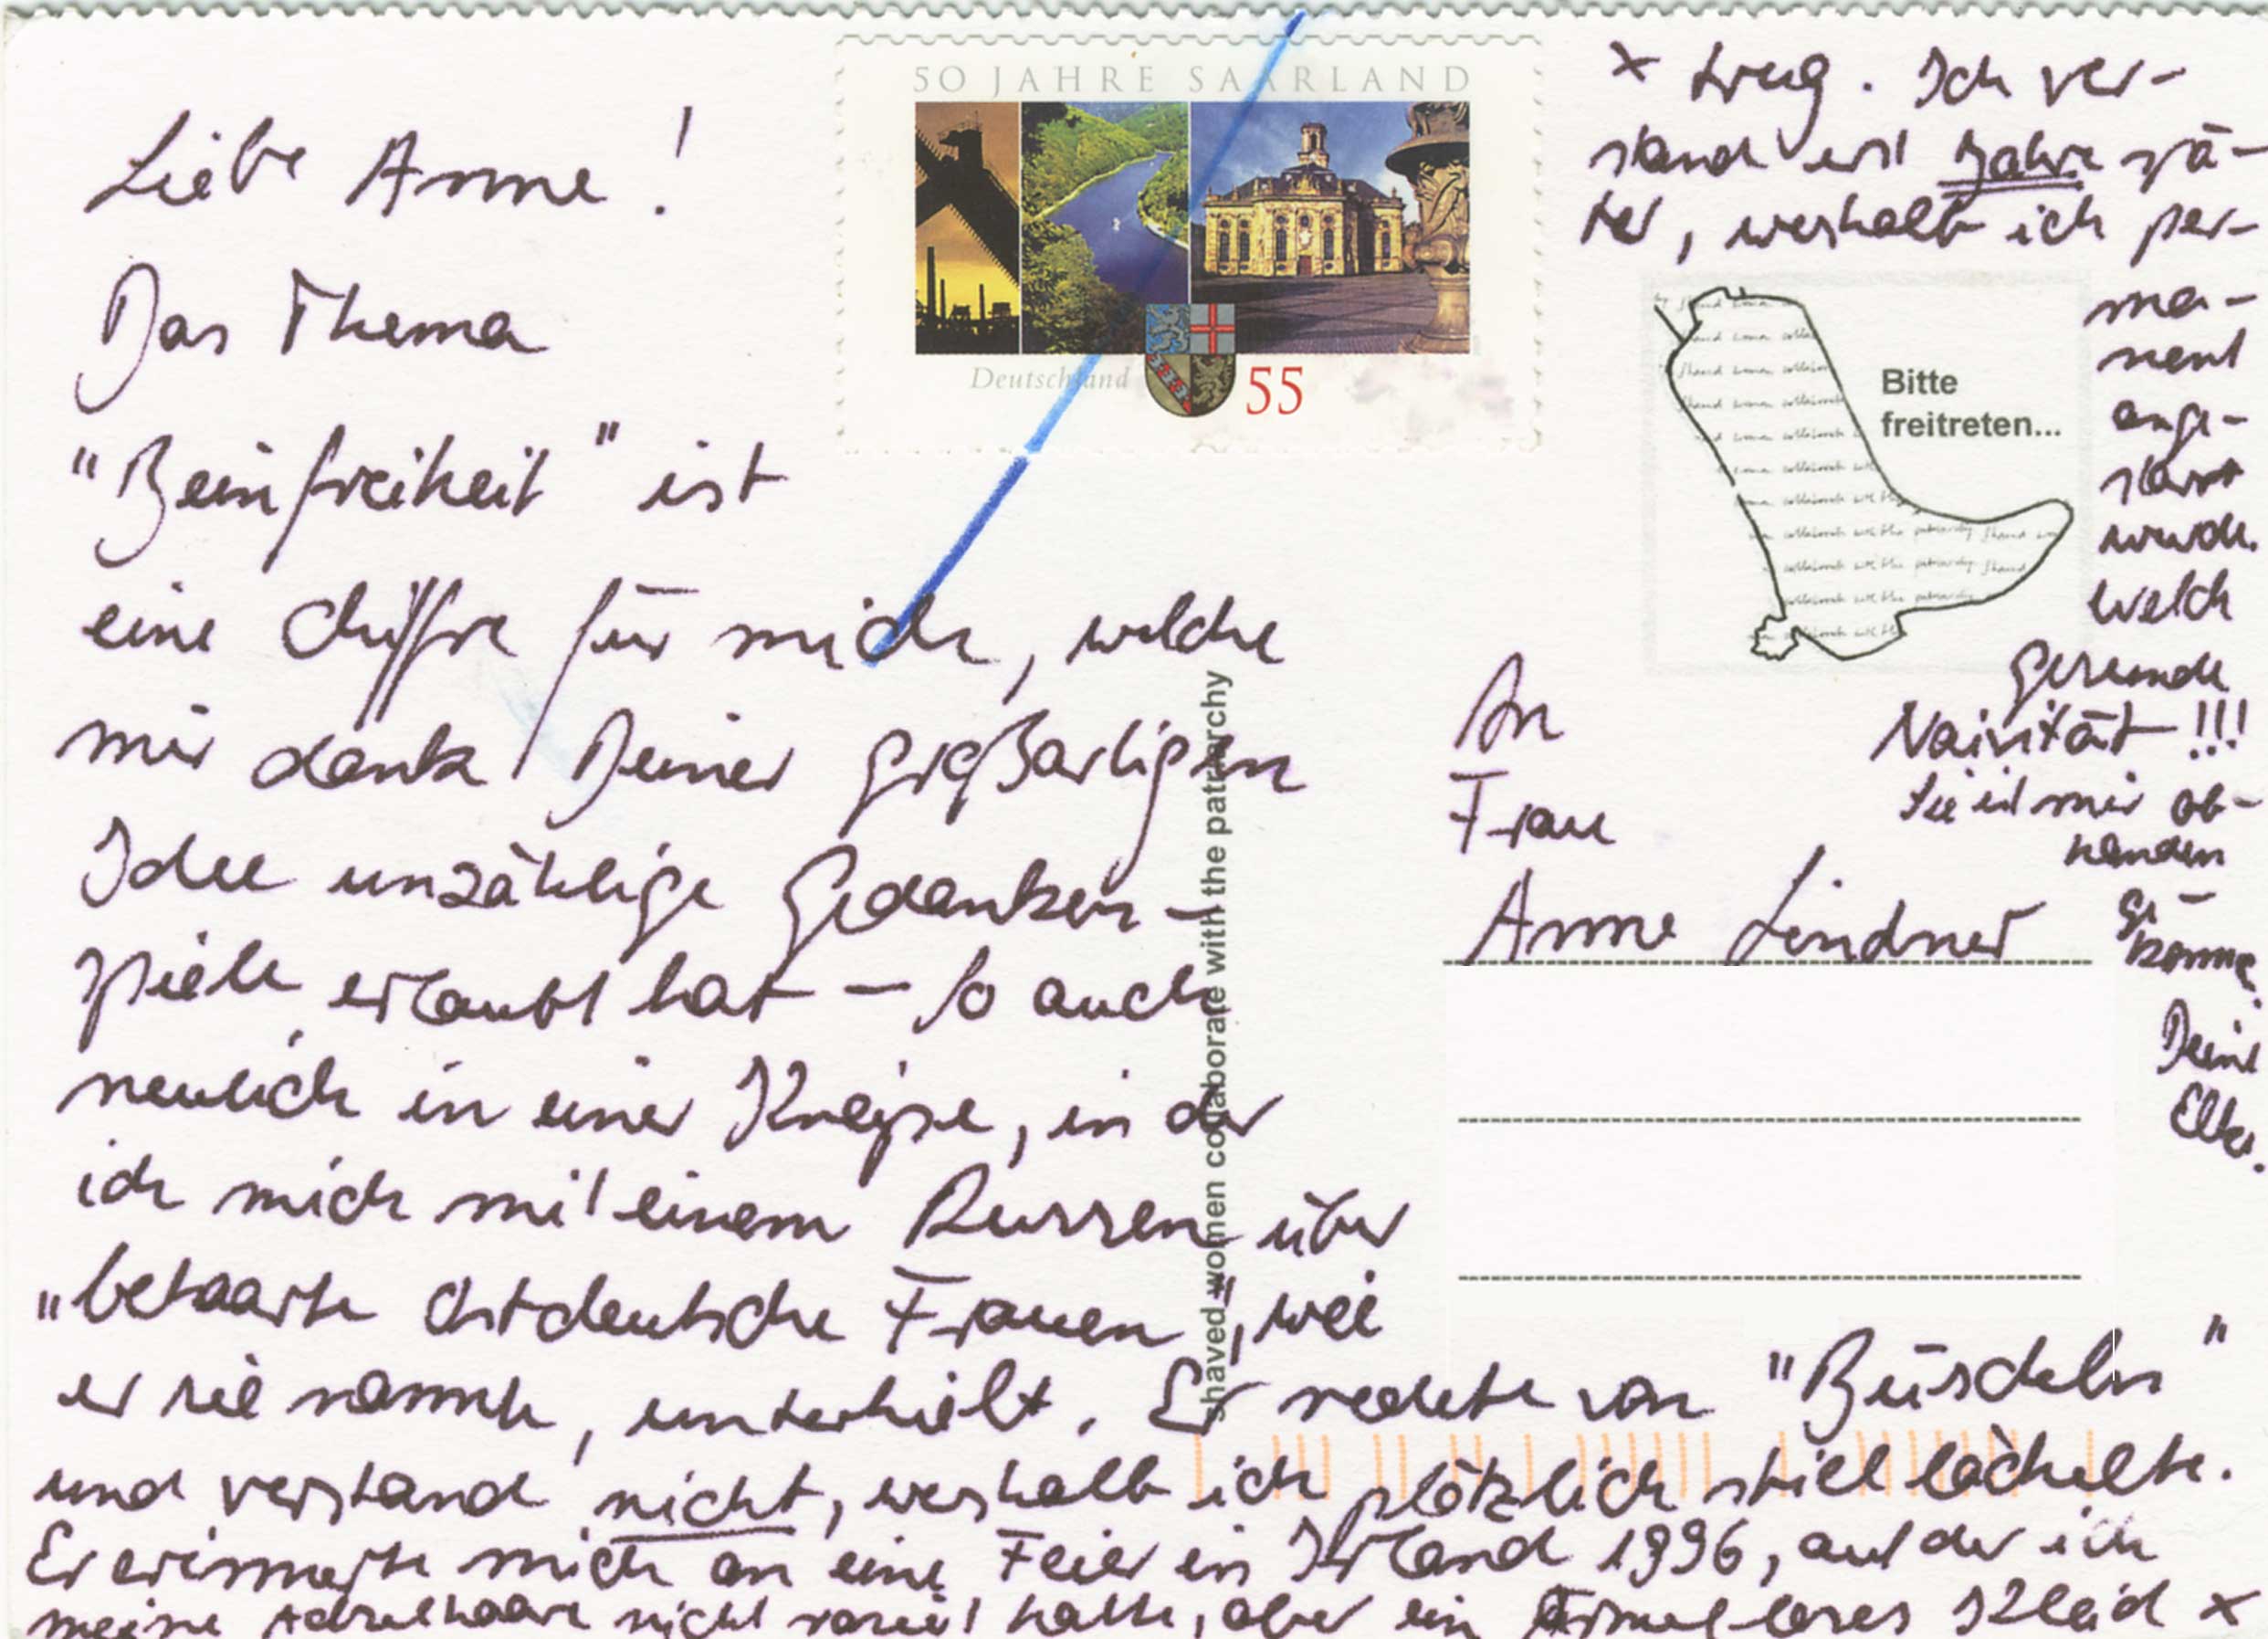 Liebe Anne!
Das Thema
"Beinfreiheit" ist
eine Chiffre für mich, welche
mir dank Deiner großartigen
Idee unzählige Gedanken-
spiele erlaubt hat – so auch
neulich in einer Kneipe, in der
ich mich mit einem Russen über
„behaarte ostdeutsche Frauen", wie
er sie nannte, unterhielt. Er redete von "Büscheln"
und verstand nicht, weshalb ich plötzlich still lächelte.
Er erinnerte mich an eine Feier in Irland 1996, auf der ich
meine Achselhaare nicht rasiert hatte, aber ein ärmelloses Kleid x
x trug. Ich ver-
stand erst Jahre spä-
ter, weshalb ich per-
ma-
nent
ange-
starrt
wurde.
Welch
gesunde
Naivität!!!
Sie ist mir ab-
handen
ge-
komme
Deine
Elke.
50 JAHRE SAARLAND
Deutschland
55
Bitte
freitreten...
An
Frau
Anne Lindner
shaved women collaborate with the patriarchy